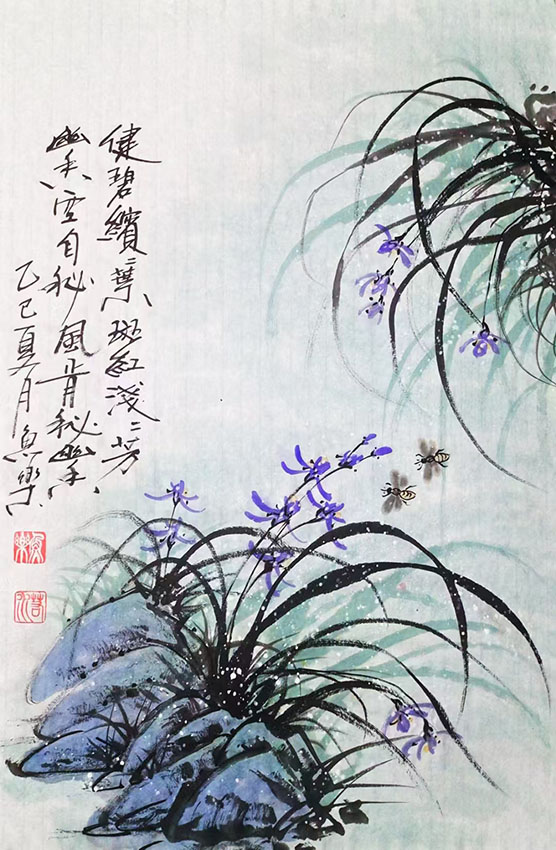 健碧繽〻葉斑紅淺〻芳
幽香空自秘風肯秘幽香
乙巳夏月魚樂